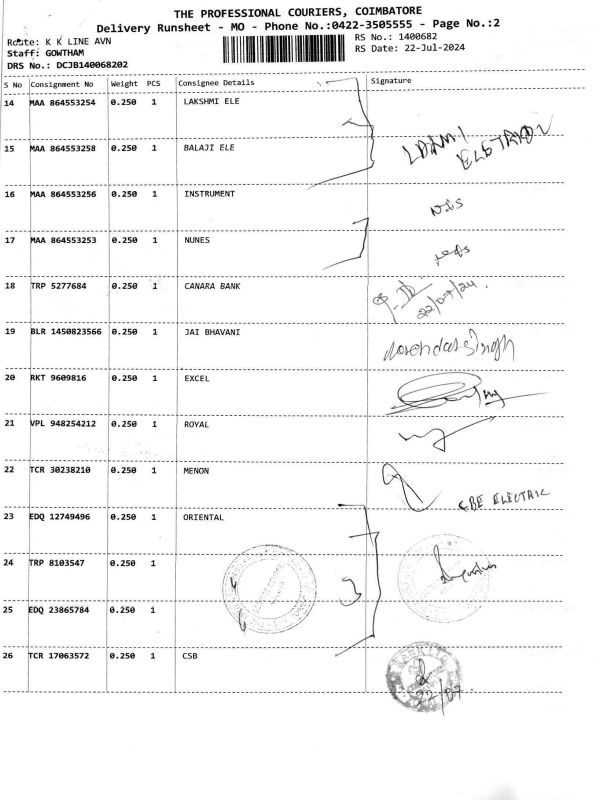 THE PROFESSIONAL COURIERS, COIMBATORE
Delivery Runsheet - MO - Phone No.:0422-3505555 - Page No.:2
Route: K K LINE AVN
RS No.: 1400682
Staff: GOWTHAM
RS Date: 22-Jul-2024
DRS No.: DCJB140068202
S No Consignment No Weight PCS Consignee Details Signature
14 MAA 864553254 0.250 1 LAKSHMI ELE
15 MAA 864553258 0.250 1 BALAJI ELE
16 MAA 864553256 0.250 1 INSTRUMENT
17 MAA 864553253 0.250 1 NUNES
18 TRP 5277684 0.250 1 CANARA BANK 22/07/24
19 BLR 1450823566 0.250 1 JAI BHAVANI
20 RKT 9609816 0.250 1 EXCEL
21 VPL 948254212 0.250 1 ROYAL
22 TCR 30238210 0.250 1 MENON
CBE ELECTRIC
23 EDQ 12749496 0.250 1 ORIENTAL
24 TRP 8103547 0.250 1
3
25 EDQ 23865784 0.250 1
26 TCR 17063572 0.250 1 CSB
22/07